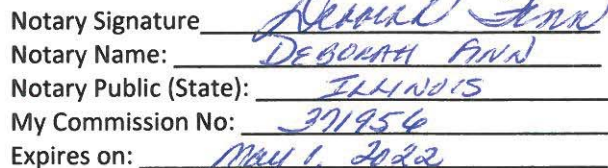 Notary Signature Deborah Ann
Notary Name: DEBORAH ANN
Notary Public (State): ILLINOIS
My Commission No: 371956
Expires on: May 1, 2022